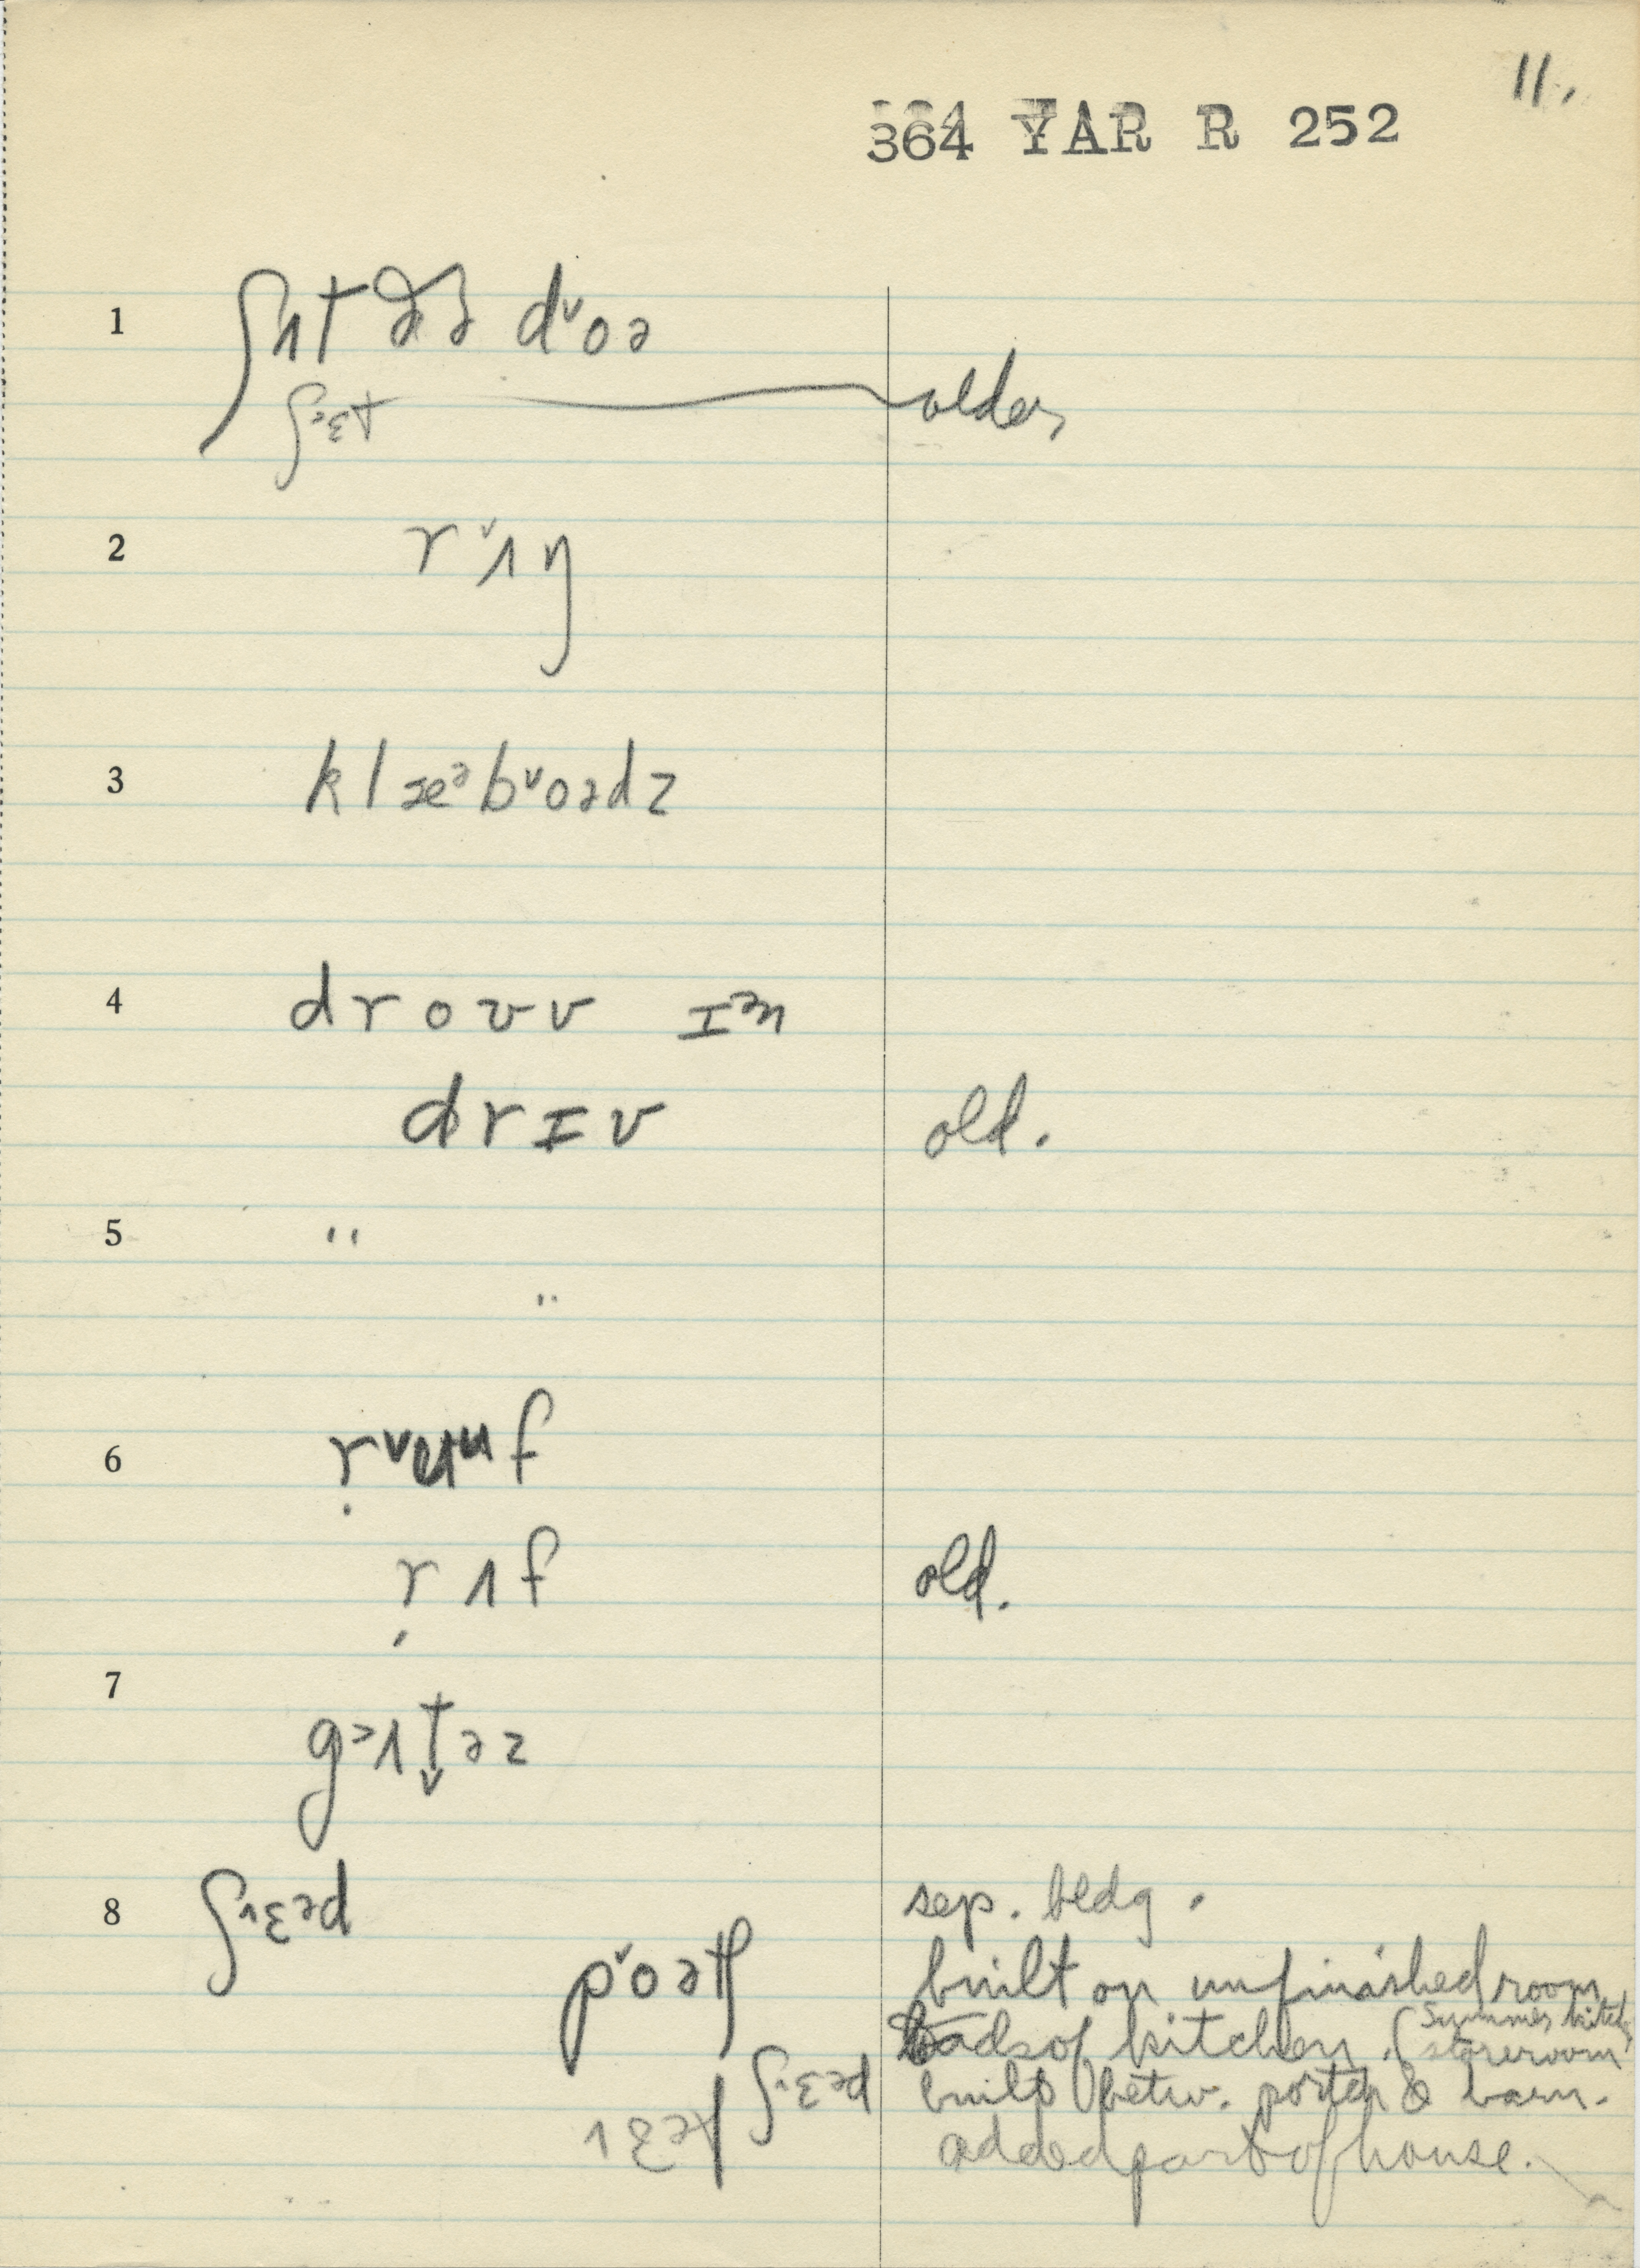 11.
364 YAR R 252
1 ʃʌt ðə dˇoə
ʃɛt older
2 rˇʌŋ
3 klæᵊbˇoədz
4 droʊv ɪᵊn
drɪv old.
5 "
"
6
rʌf old.
7
gʌtəz
8 ʃɛᵊd sep. bldg.
pˇoətʃ built on unfinished room
of kitchen. (Summer kitch
storeroom
ʃɛᵊd built betw. porch & barn.
ɛᵊl added part of house.